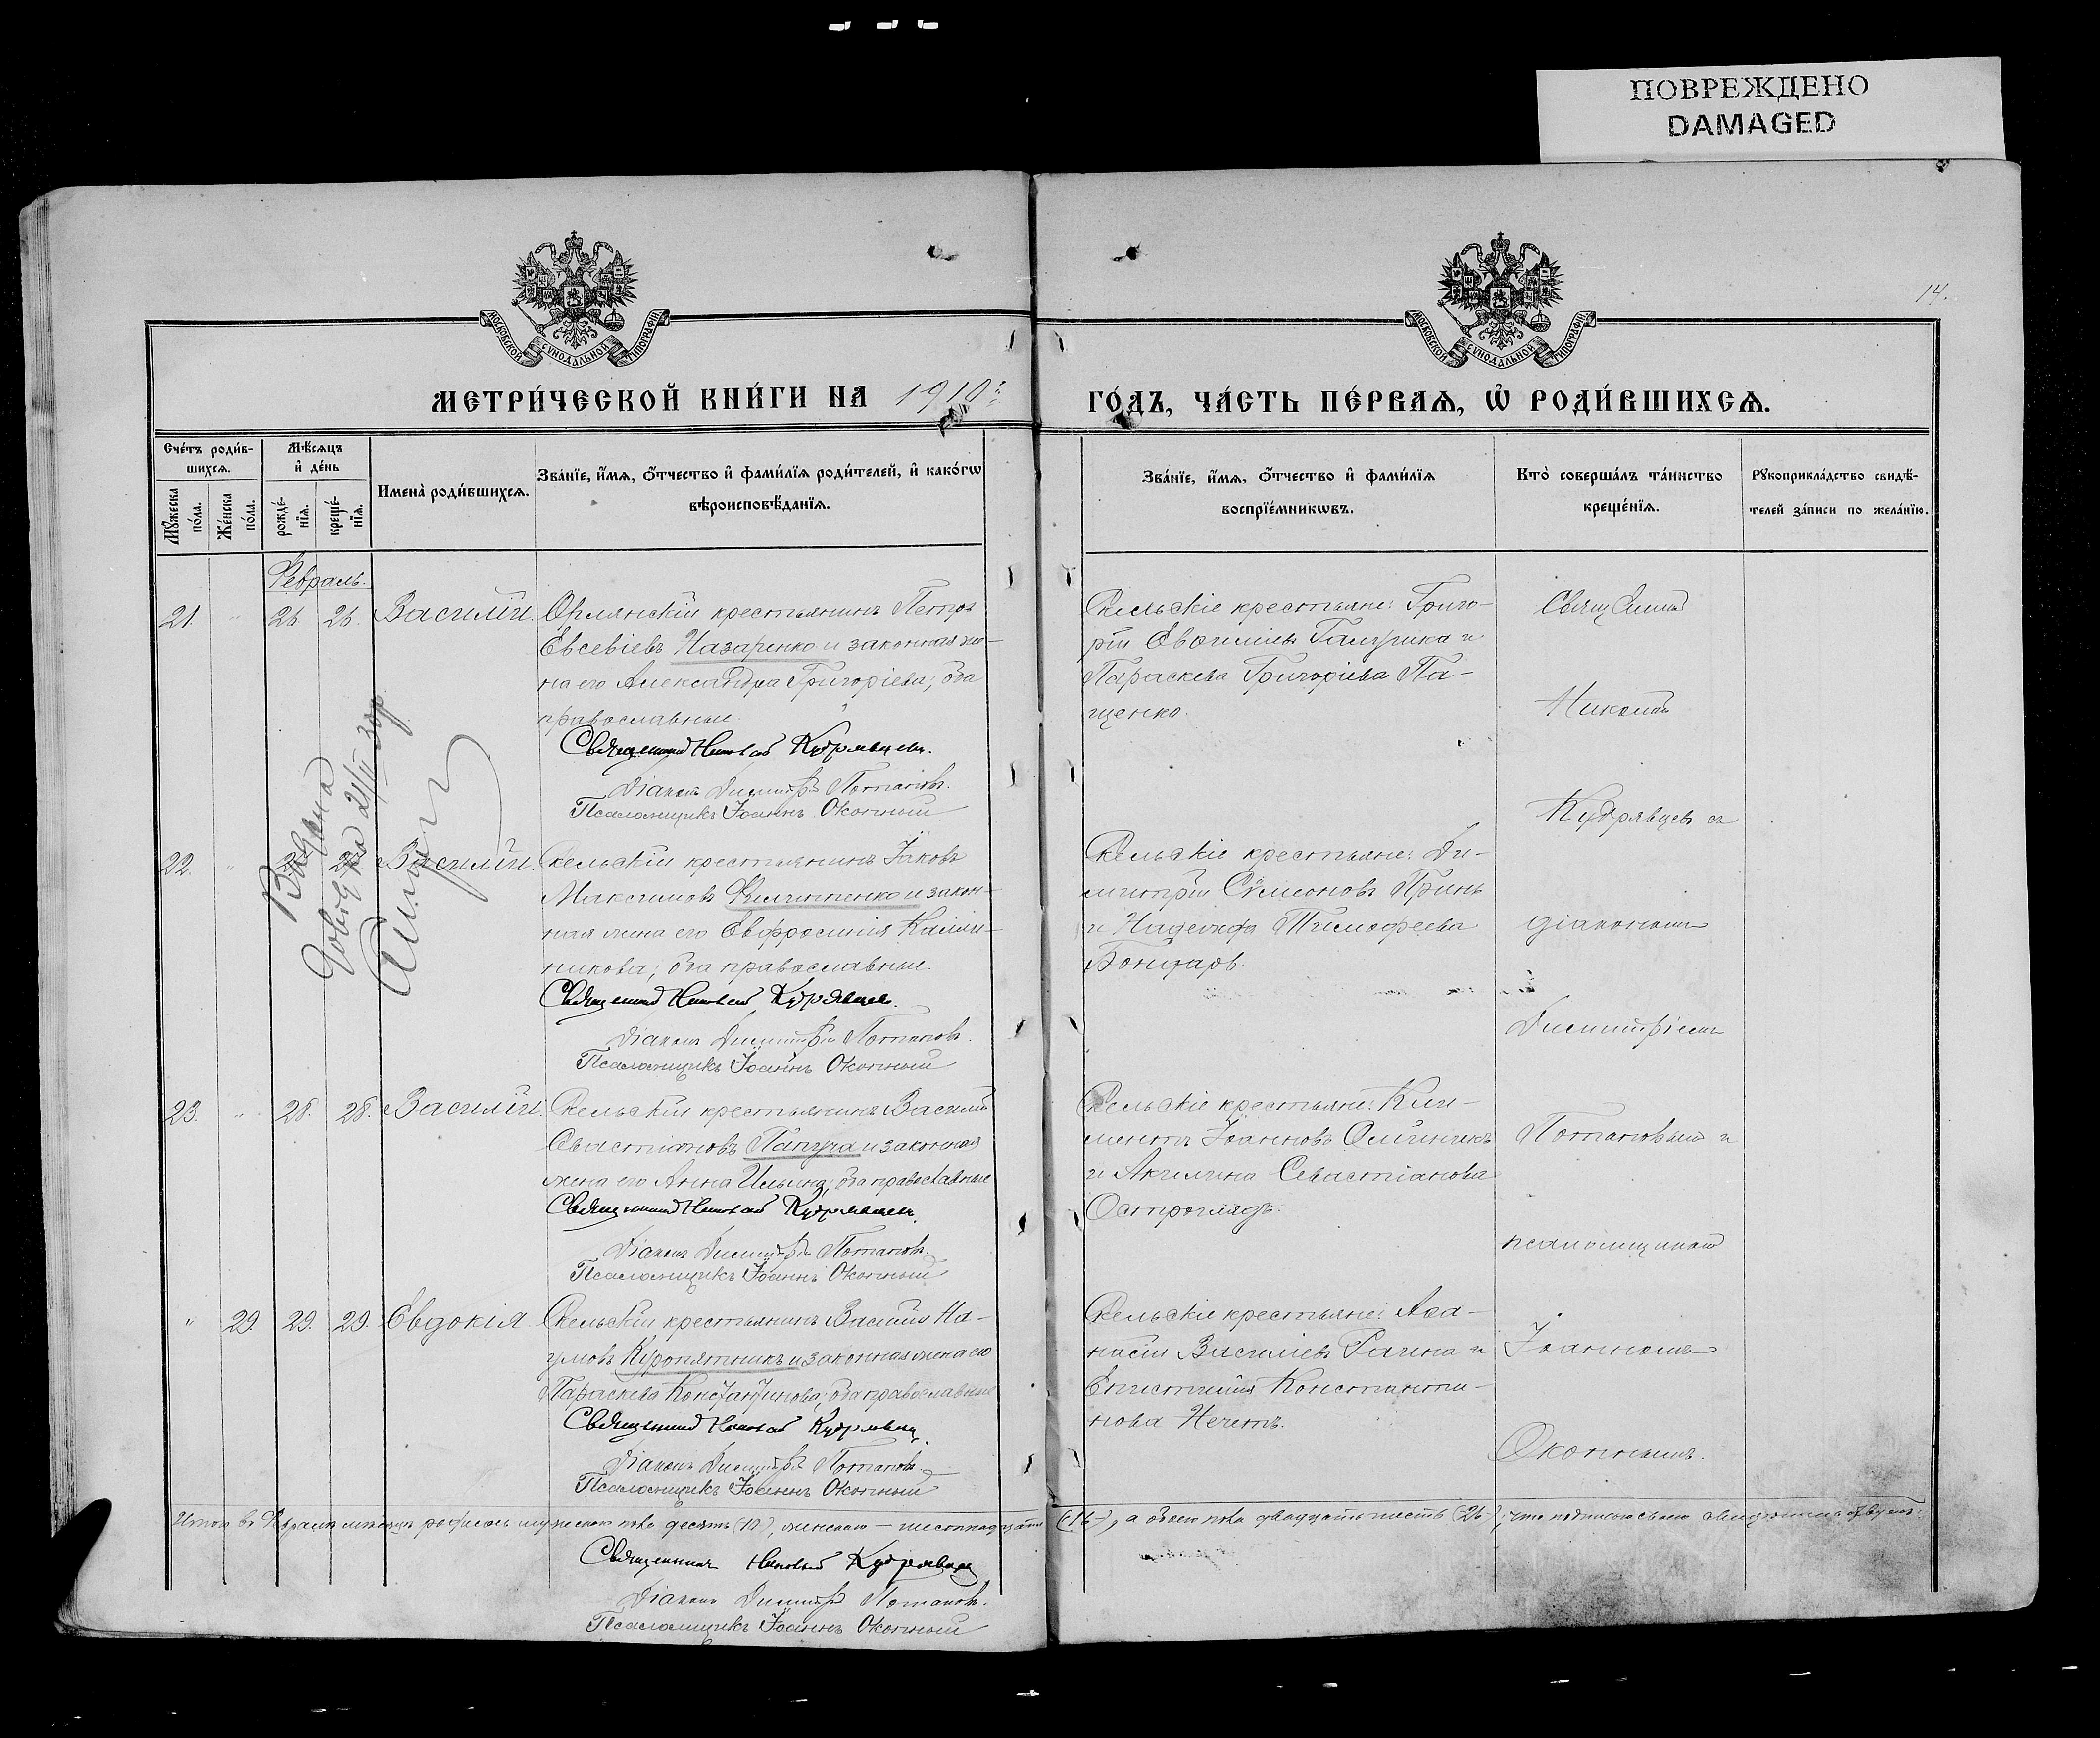 ПОВРЕЖДЕНО
DAMAGED
14.
МОСКОВСКОЙ СѴНОДАЛЬНОЙ ТИПОГРАФІИ
МОСКОВСКОЙ СѴНОДАЛЬНОЙ ТИПОГРАФІИ
МЕТРИ́ЧЕСКОЙ КНИ́ГИ НА 1910 ГО́ДЪ, ЧА́СТЬ ПЕ́РВАЯ, Ѡ РОДИ́ВШИХСЯ.
Сче́тъ роди́в-
шихся.
Мѣ́сяцъ
и҆ де́нь
Мꙋ́жеска по́ла.
Же́нска по́ла.
рожде́-
нїя.
креще́-
нїя.
Имена̀ роди́вшихся.
Зва́нїе, и҆́мя, ѻ҆́тчество и҆ фами́лїя роди́телей, и҆ како́гѡ
вѣроисповѣ́данїя.
Зва́нїе, и҆́мя, ѻ҆́тчество и҆ фами́лїя
воспрїе́мникѡвъ.
Кто̀ соверша́лъ та́инство
креще́нїя.
Рꙋкоприкла́дство свидѣ́-
телей за́писи по жела́нїю.
Февраль.
21. " 26 26. Василій.
Орлянскій крестьянинъ Петръ
Евсевіевъ Назаренко и законная же-
на его Александра Григоріева; оба
православные.
Священникъ Николай Кудрявцевъ.
Діаконъ Димитрій Потаповъ.
Псаломщикъ Іоаннъ Окопный
Сельскіе крестьяне: Григо-
рій
Параскева Григоріева Па-
щенко.
Выдана
22. " Василій.
Сельскій крестьянинъ Іаковъ
Максимовъ и закон-
ная жена его Евфросинія Каллин-
никова; оба православные.
Священникъ Николай Кудрявцевъ.
Діаконъ Димитрій Потаповъ.
Псаломщикъ Іоаннъ Окопный
Сельскіе крестьяне: Ди-
митрій Сѵмеоновъ Принь
и Надежда Тимофеева
Бондарь.
23. " 28. 28. Василій.
Сельскій крестьянинъ Василій
Севастіановъ Папуча и законная
жена его Анна Ильина; оба православные
Священникъ Николай Кудрявцевъ.
Діаконъ Димитрій Потаповъ.
Псаломщикъ Іоаннъ Окопный
Сельскіе крестьяне: Кли-
ментъ Іоанновъ Олійникъ
и Акилина Севастіанова
Остроглядъ.
" 29. 29. 29. Евдокія
Сельскій крестьянинъ Василій На-
умовъ Куропятникъ и законная жена его
Параскева Константинова; оба православные
Священникъ Николай Кудрявцевъ.
Діаконъ Димитрій Потаповъ.
Псаломщикъ Іоаннъ Окопный
Сельскіе крестьяне: Аѳа-
насій Василіевъ и
Епистимія Константи-
нова Нечетъ.
Священникъ
Николай
Кудрявцевъ съ
діакономъ
Димитріемъ
Потаповымъ и
псаломщикомъ
Іоанномъ
Окопнымъ.
Итого въ Февралѣ мѣсяцѣ родилось мужескаго пола десять (10), женскаго — шестнадцать (16), а обоего пола двадцать шесть (26), что подписью своею свидѣтельствуемъ:
Священникъ Николай Кудрявцевъ
Діаконъ Димитрій Потаповъ.
Псаломщикъ Іоаннъ Окопный